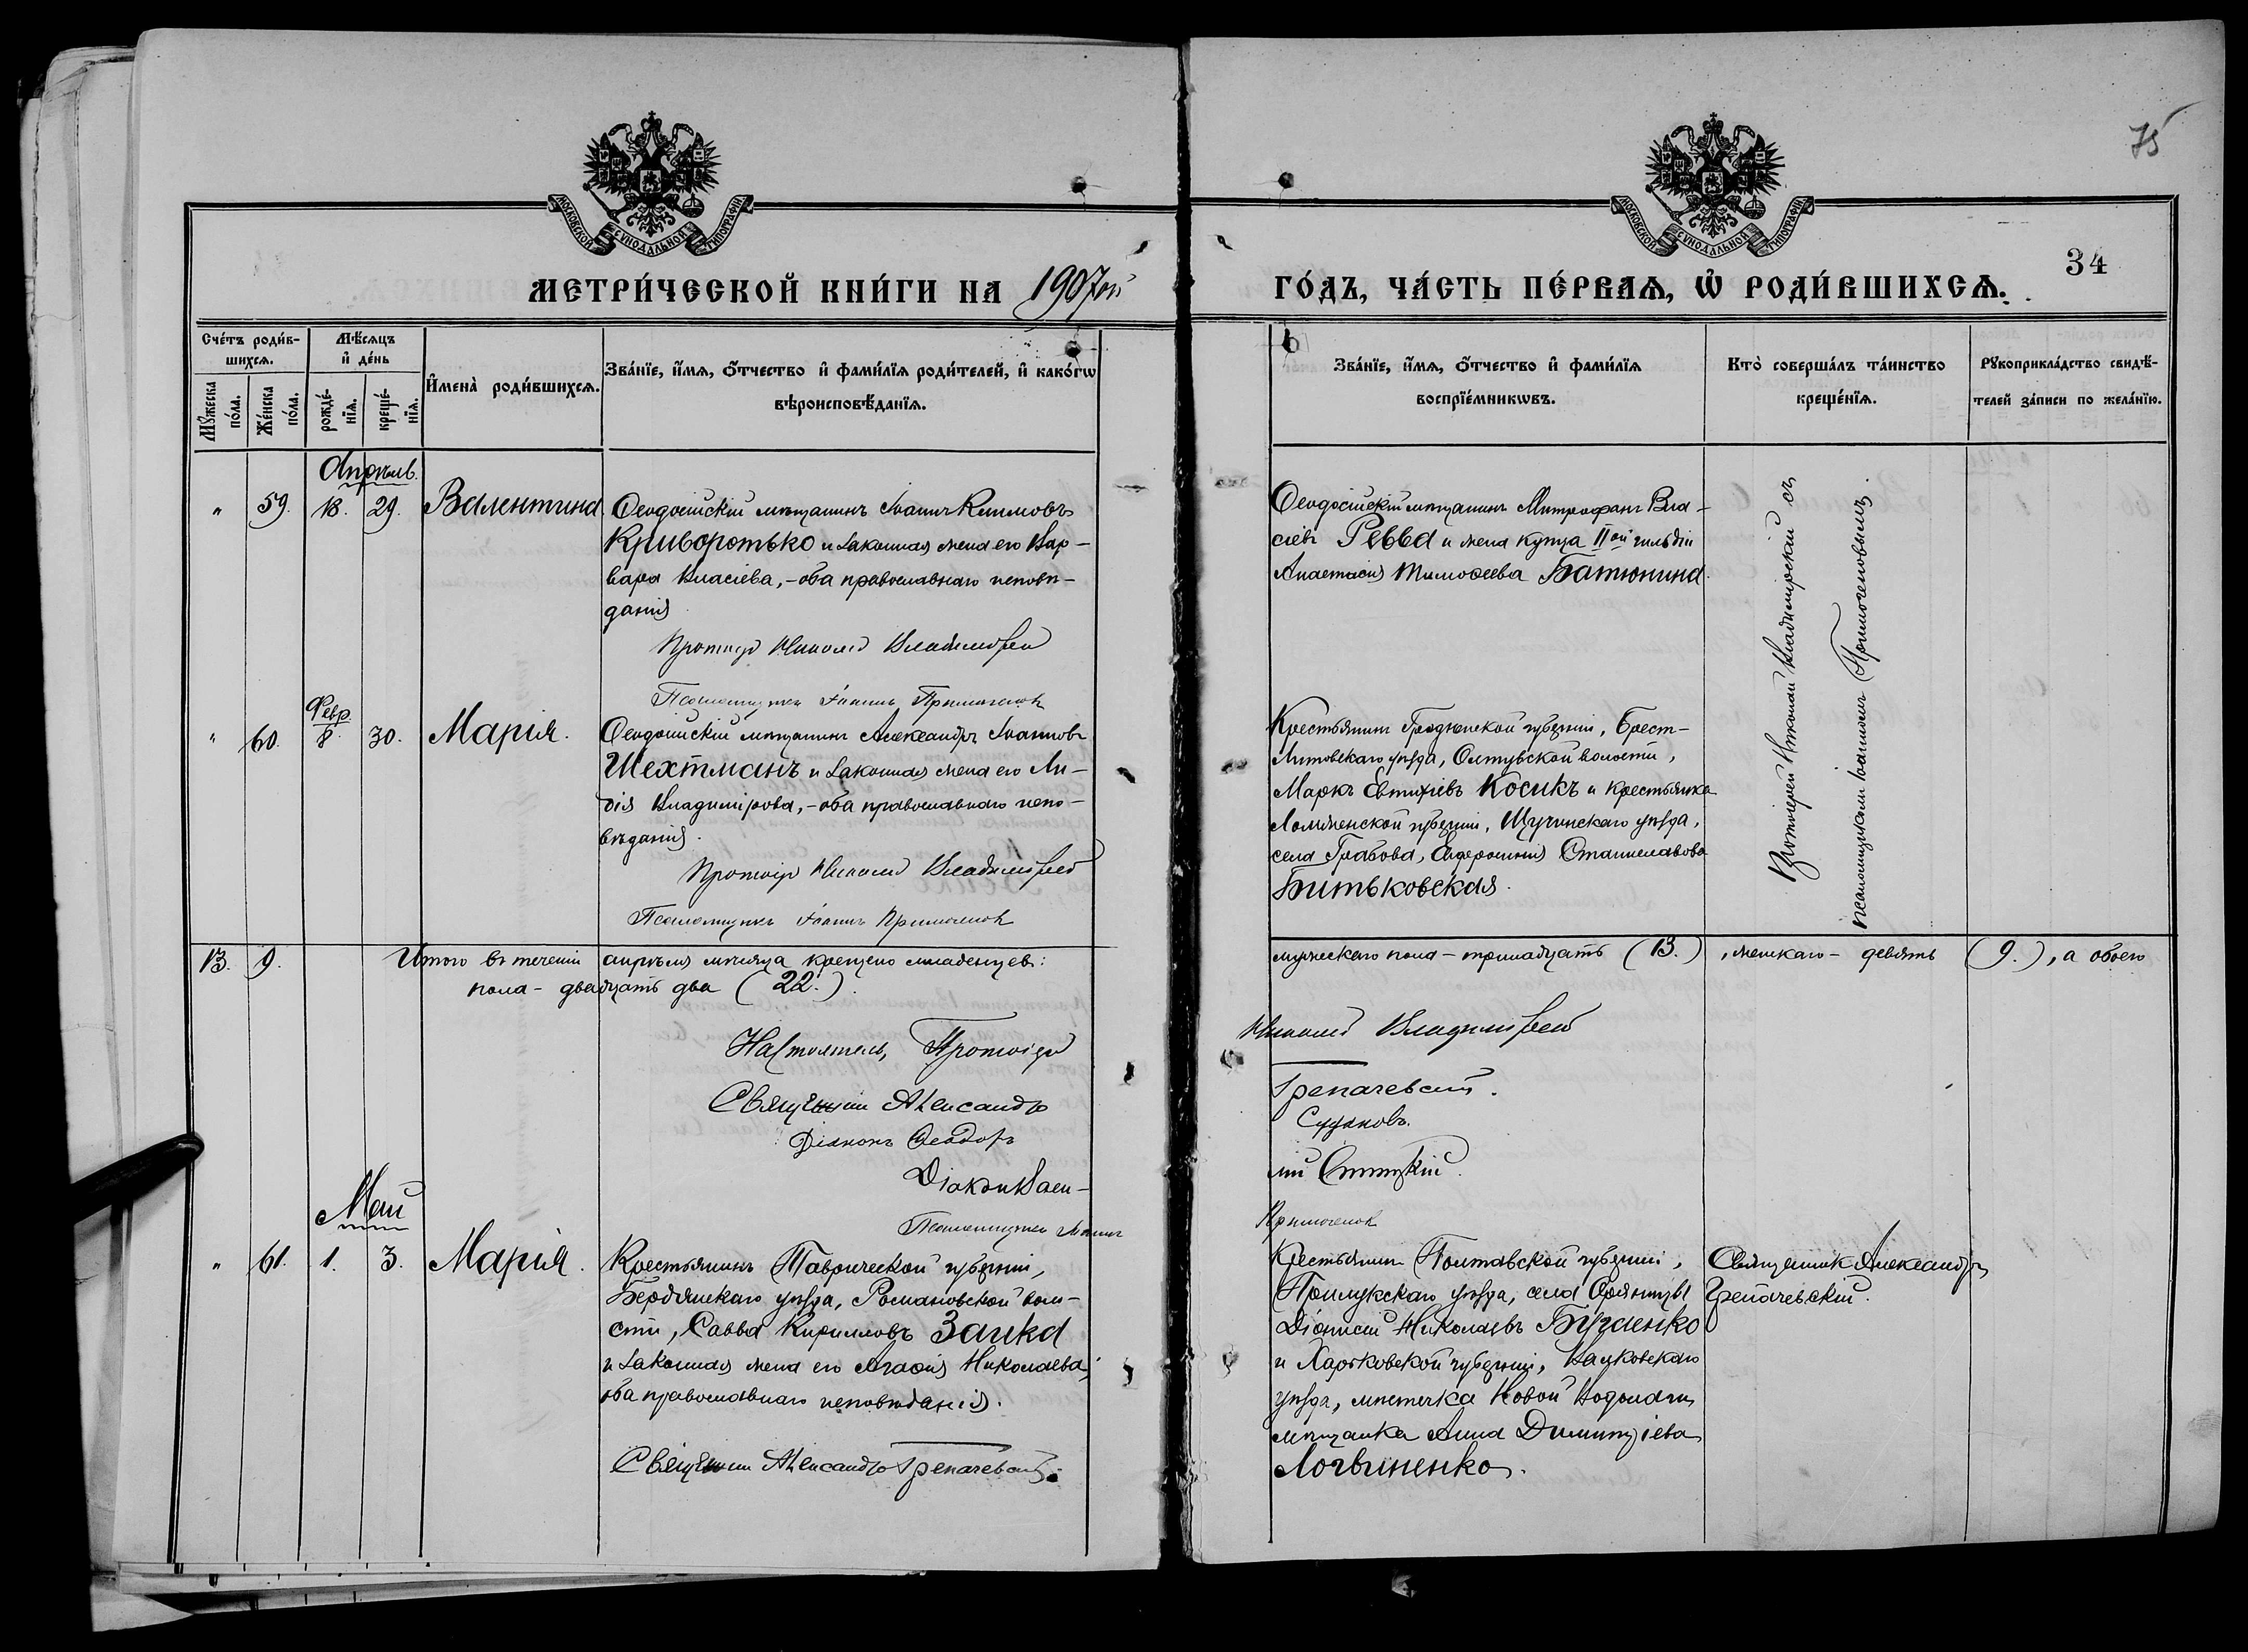 75
МОСКОВСКОЙ СѴНОДАЛЬНОЙ ТИПОГРАФІИ
МОСКОВСКОЙ СѴНОДАЛЬНОЙ ТИПОГРАФІИ
34
МЕТРИ́ЧЕСКОЙ КНИ́ГИ НА 1907ой
ГО́ДЪ, ЧА́СТЬ ПЕ́РВАѦ, Ѡ҆ РОДИ́ВШИХСѦ.
Сче́тъ роди́в-
шихсѧ.
Мꙋ́жеска по́ла.
Же́нска по́ла.
Мѣ́сѧцъ
и҆ де́нь
рожде́-
нїѧ.
креще́-
нїѧ.
И҆мена̀ роди́вшихсѧ.
Зва́нїе, и҆́мѧ, ѻ҆́тчество и҆ фами́лїѧ роди́телей, и҆ како́гѡ
вѣроисповѣ́данїѧ.
Зва́нїе, и҆́мѧ, ѻ҆́тчество и҆ фами́лїѧ
воспрїе́мникѡвъ.
Кто̀ соверша́лъ та́инство
креще́нїѧ.
Рꙋкоприкла́дство свидѣ́-
телей за́писи по жела́нїю.
Апрѣль.
" 59. 18. 29. Валентина.
Ѳеодосійскій мѣщанинъ Іоаннъ Климовъ
Криворотько и законная жена его Вар-
вара Власіева, - оба православнаго исповѣ-
данія.
Протоіер Николай Владимірскій
Псаломщикъ Іоаннъ Примоченок
Ѳеодосійскій мѣщанинъ Митрофанъ Вла-
сіевъ Ревва и жена купца IIой гильдіи
Анастасія Тимоѳеева Батюнина.
Протоіерей Николай Владимірскій съ
псаломщикомъ Іоанномъ Примоченовымъ.
Февр.
" 60. 8. 30. Марія.
Ѳеодосійскій мѣщанинъ Александръ Іоанновъ
Шехтманъ и законная жена его Ли-
дія Владимірова, - оба православнаго испо-
вѣданія.
Протоіер Николай Владимірскій
Псаломщикъ Іоаннъ Примоченок
Крестьянинъ Гродненской губерніи, Брест-
Литовскаго уѣзда, Олтушской волости,
Маркъ Евтихіевъ Косикъ и крестьянка
Ломженской губерніи, Щучинскаго уѣзда,
села Грабова, Станиславова
Битьковская.
13. 9. Итого въ теченіи апрѣля мѣсяца крещено младенцевъ: мужескаго пола - тринадцать (13.), женскаго - девять (9.), а обоего
пола - двадцать два (22.).
Настоятель, Протоіер Николай Владимірскій
Священник Александр Грепачевскій.
Діаконъ Ѳеодоръ Судаковъ.
Діакон Васи-
лій
Псаломщикъ Іоаннъ Примоченок
Май
" 61. 1. 3. Марія.
Крестьянинъ Таврической губерніи,
Бердянскаго уѣзда, Романовской воло-
сти, Савва Кирилловъ Заика
и законная жена его Агаѳія Николаева,
оба православнаго исповѣданія.
Священник Александр Грепачевскій.
Крестьянин Полтавской губерніи,
Прилукскаго уѣзда, села
Діонисій Николаевъ
и Харьковской губерніи, Валковскаго
уѣзда, мѣстечка Новой Водолаги
мѣщанка Анна Димитріева
Логвиненко.
Священник Александръ
Грепачевскій.